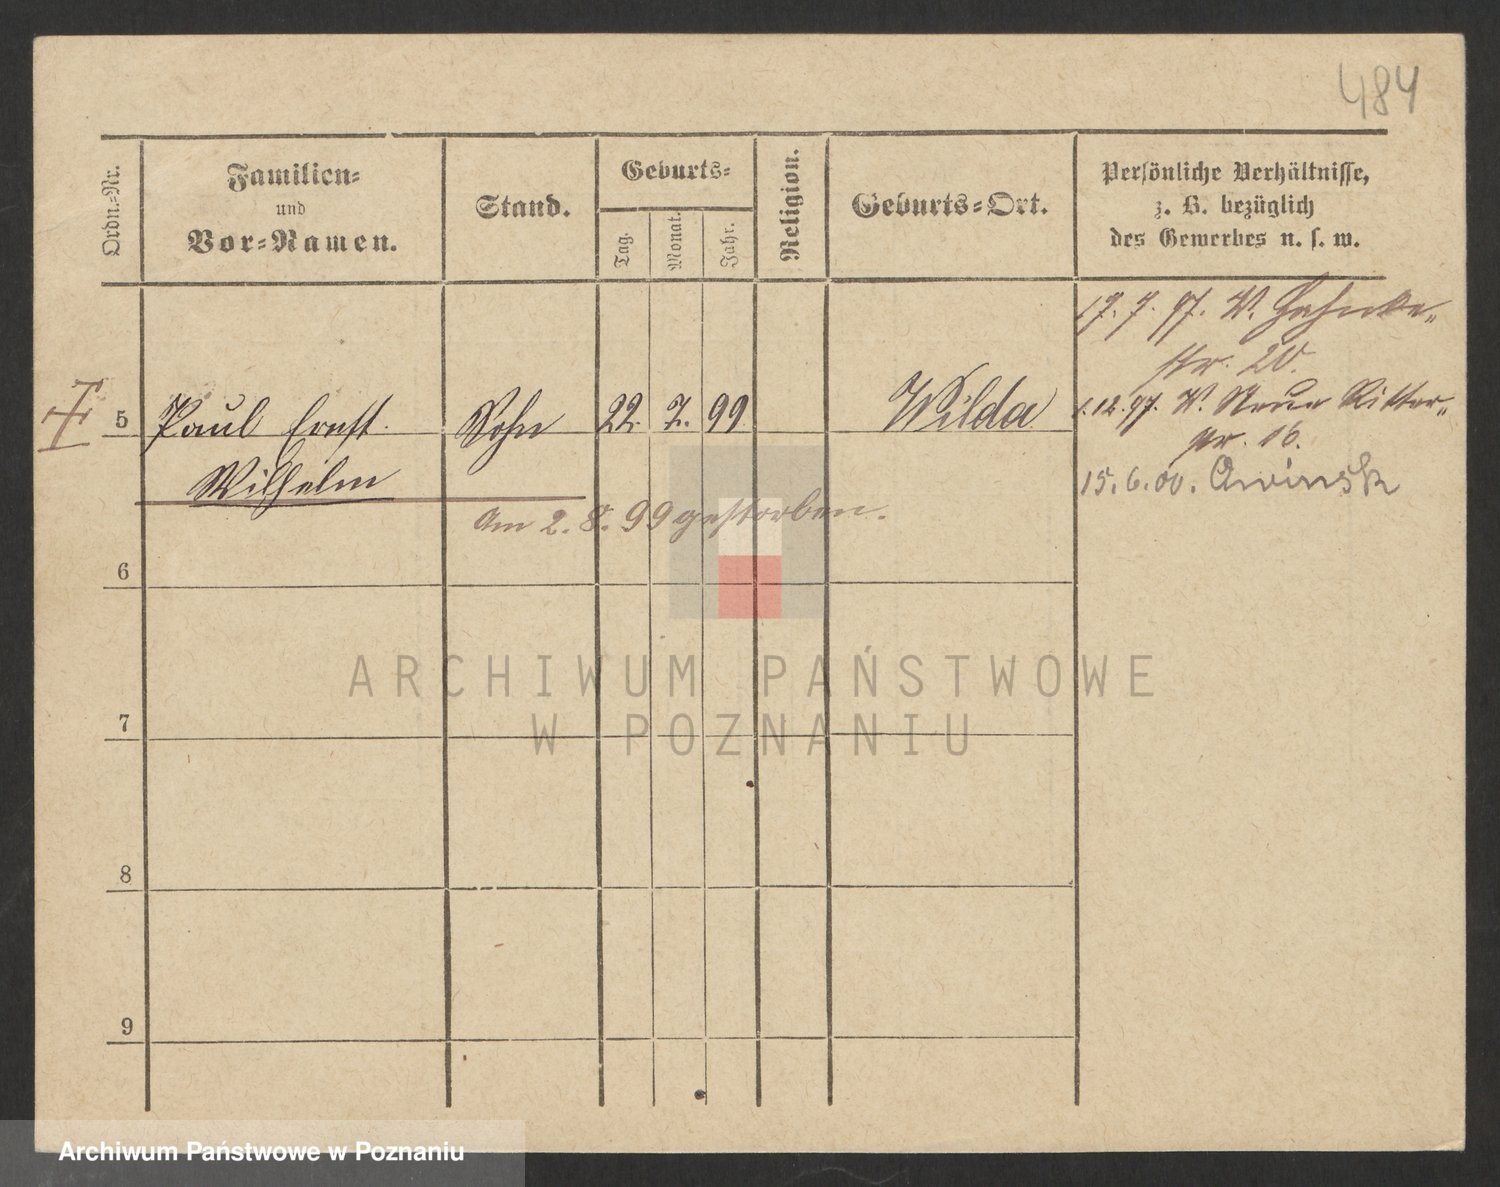 484
Ordn.-Nr.
Familien-
und
Vor-Namen.
Stand.
Geburts-
Tag.
Monat.
Jahr.
Religion.
Geburts-Ort.
Persönliche Verhältnisse,
z. B. bezüglich
des Gewerbes u. s. w.
W.
str. 20.
5 Paul Ernst Sohn 22. 7. 99 Wilda
1.12.97. W. Neue Ritter-
str. 16.
Wilhelm
15.6.00. Owinsk
Am 2. 8. 99 gestorben.
6
7
8
9
ARCHIWUM PAŃSTWOWE
W POZNANIU
Archiwum Państwowe w Poznaniu